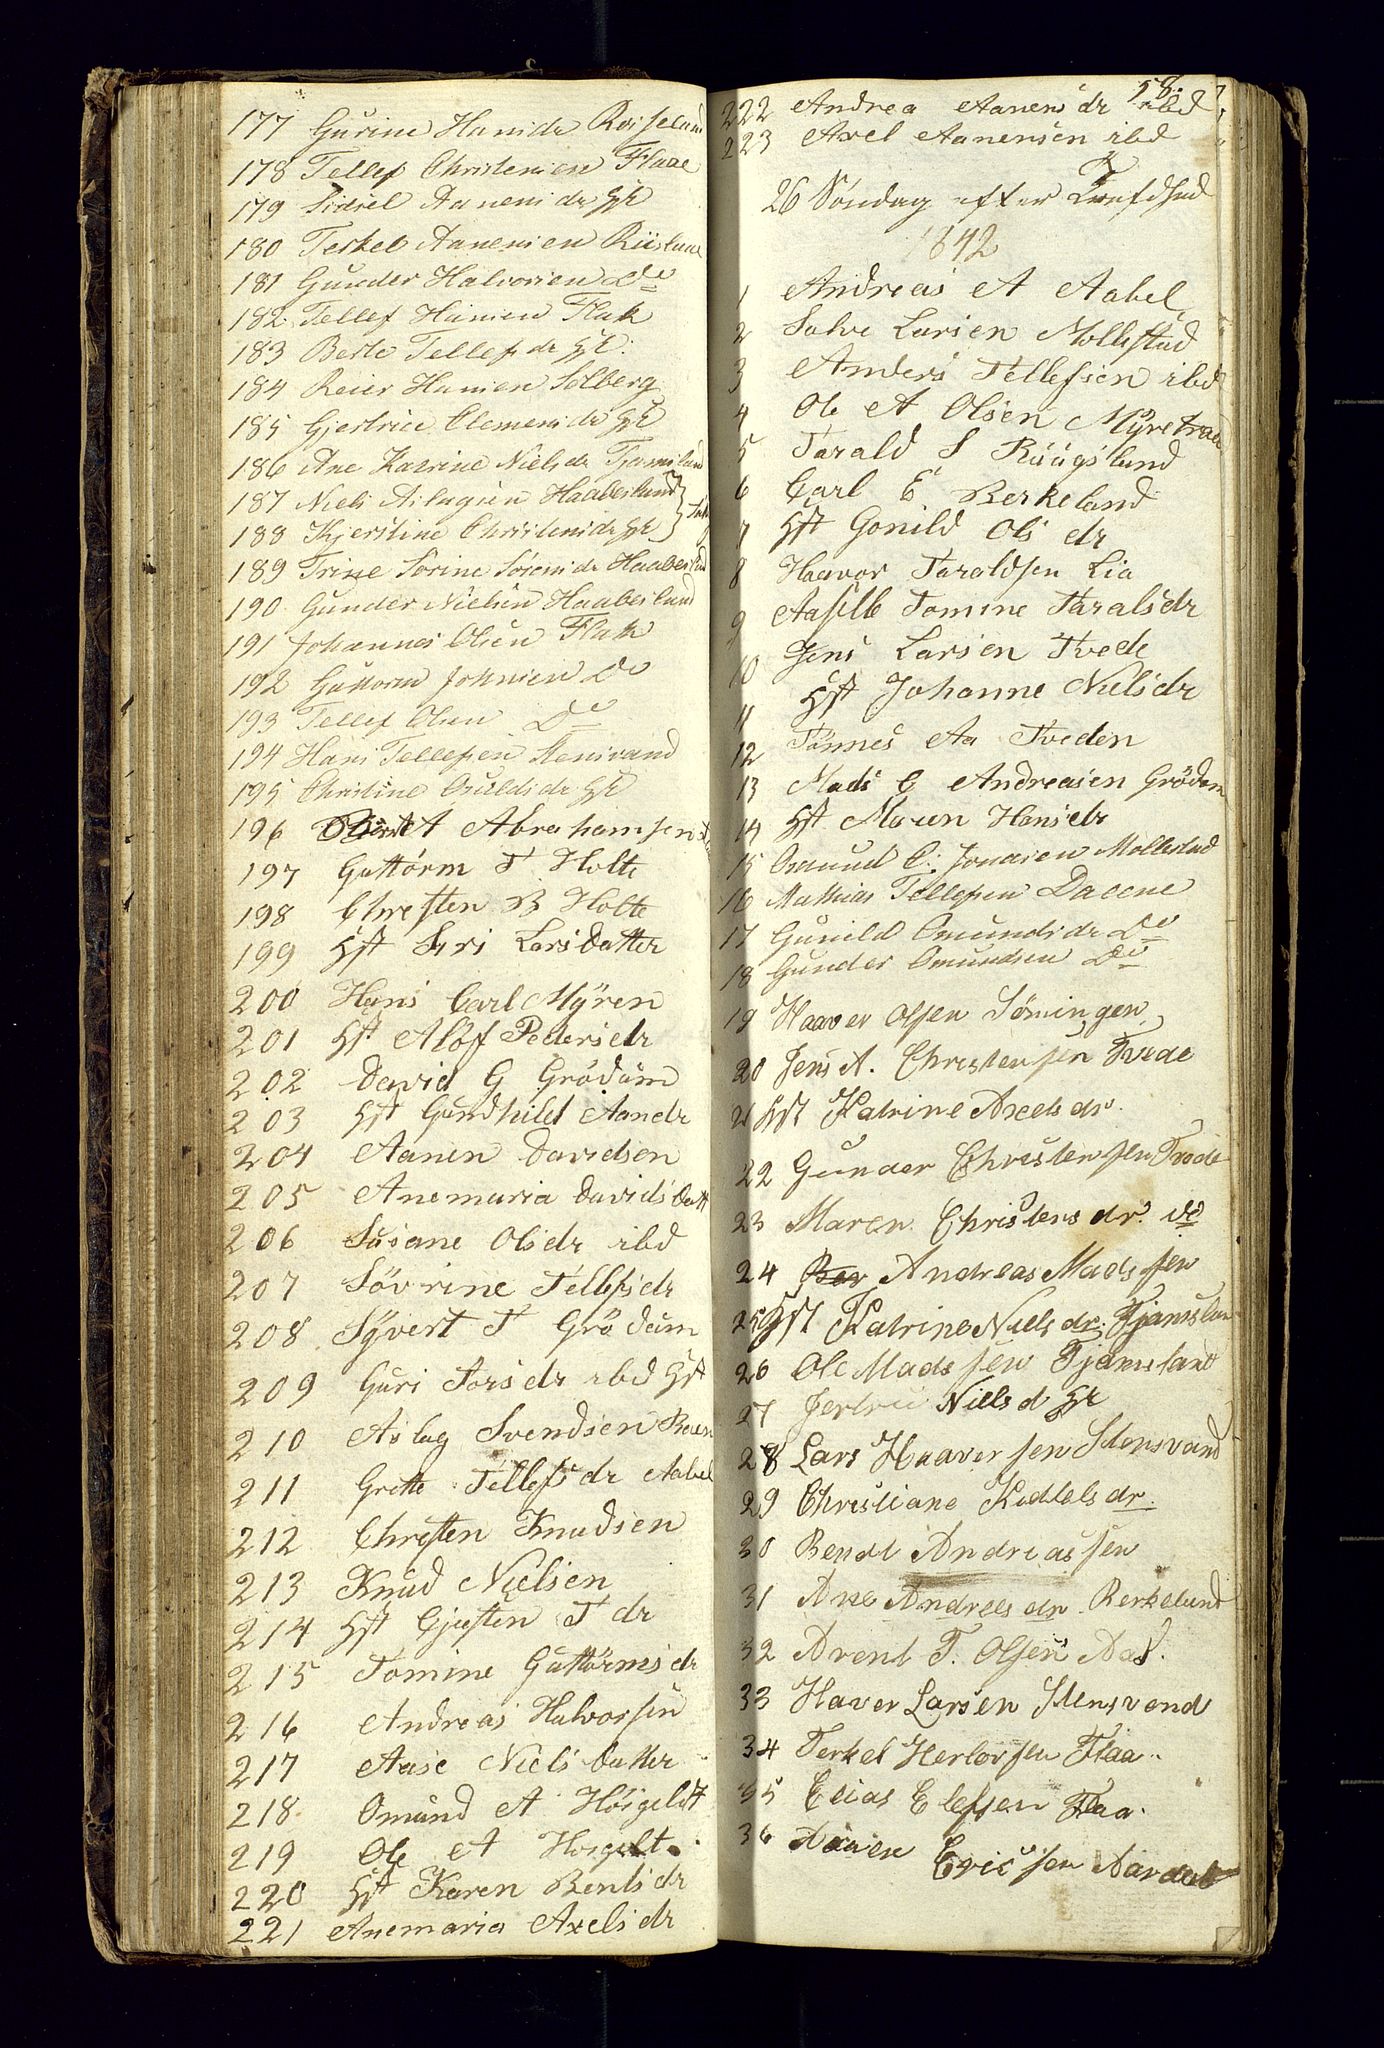 177 Gurine Hansdr Reiseland
178 Tellef Christensen Flaae
179 Sidsel Aanensdr HK
180 Terkel Aanensen Riisland
181 Gunder Halvorsen Do
182 Tellef Hansen Flak
183 Berte Tellefsdr HK:
184 Reier Hansen Solberg
185 Gjertrue Clemensdr HK
186 Ane Katrine Nielsdr Tjomsland
187 Niels Aslagsen Haabesland
188 Kjerstine Christensdr HK
189 Trine Sörine Sörensdr Haabesland
190 Gunder Nielsen Haabesland
191 Johannes Olsen Flak
192 Guttorm Johnsen Do
193 Tellef Olsen Do
194 Hans Tellefsen Stensvand
195 Christine Osuldsdr HK
196 A Abrahamsen
197 Guttorm T Holte
198 Chresten B Holte
199 Hst Siri Larsdatter
200 Hans Carl Myren
201 Hst Alöf Pedersdr
202 David G Grödum
203 Hst Gundhild Aandr
204 Aanen Davidsen
205 Anemaria Davidsdatt
206 Susane Olsdr ibd
207 Sövrine Tellefsdr
208 Syvert T Grödum
209 Guri Torsdr ibd Hst
210 Aslag Svendsen
211 Grette Tellefsdr Aabel
212 Chresten Knudsen
213 Knud Nielsen
214 Hst Gjusten T dr
215 Tomine Guttormsdr
216 Andreas Halvorsen
217 Aase Niels Datter
218 Omund A Hörgelt
219 Ole A Horgelt
220 Hst Karen Bentsdr
221 Anemaria Axelsdr
58.
222 Andrea Aanensdr ibd
223 Axel Aanensen ibd
26 Söndag efter Trefdhed
1842
1 Andreas A Aabel
2 Salve Larsen Mollestad
3 Anders Tellefsen ibd
4 Ole A Olsen Myretraa
5 Tarald S Rüügsland
6 Carl E Berkeland
7 Hst Gonild Ols dr
8 Haavor Taraldsen Lia
9 Aasille Tomine Taralsdr
10 Jens Larsen Tvede
11 Hst Johanne Nielsdr
12 Tönnes Aa Tveden
13 Mads C Andreasen Grödum
14 Hst Maren Hansdr
15 Osmund C. Jonasen Mollestad
16 Mathias Tellefsen Daaene
17 Gunild Omundsdr Do
18 Gunder Omundsen Do
19 Haaver Olsen Söningen
20 Jens A. Christensen Tvede
21 Hst Katrine Axelsdr.
22 Gunder Christensen Tvede
23 Maren Christensdr. do
24 Andreas Madssen
25 Hst Katrine Nielsdr. Tjomsland
26 Ole Madssen Tjomsland
27 Jertrue Nielsd HK
28 Lars Haaversen Stensvand
29 Christiane Keddelsdr.
30 Bendt Andreassen
31 Ane Andreesdr. Berkeland
32 Arent T. Olsen Aas.
33 Haver Larsen Stensvand
34 Terkel Herlovsen Flaa.
35 Elias Elefsen Flaa.
36 Aanen
Ericsen Aardal